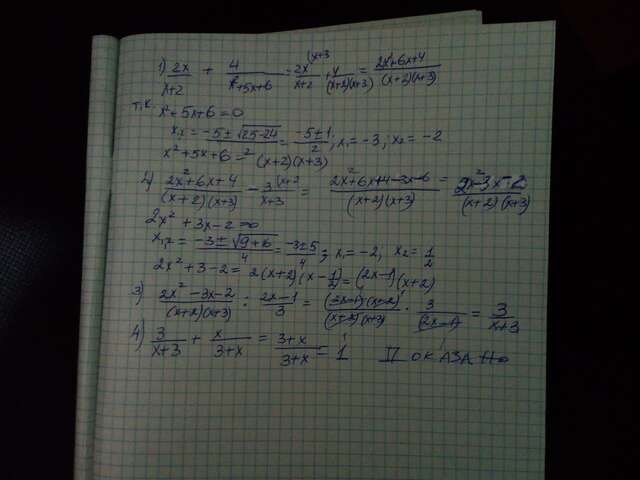 1) 2x/(x+2) + 4/(x²+5x+6) = 2x/(x+2) (x+3 + 4/((x+2)(x+3)) = (2x²+6x+4)/((x+2)(x+3))
т.к. x²+5x+6=0
x₁,₂ = (-5±√25-24)/2 = (-5±1)/2; x₁=-3; x₂=-2
x²+5x+6=(x+2)(x+3)
2) (2x²+6x+4)/((x+2)(x+3)) - 3/(x+3) (x+2 = (2x²+6x+4-3x-6)/((x+2)(x+3)) = (2x²-3x-2)/((x+2)(x+3))
2x²+3x-2=0
x₁,₂ = (-3±√9+16)/4 = (-3±5)/4; x₁=-2; x₂=1/2
2x²+3-2=2(x+2)(x-1/2)=(2x-1)(x+2)
3) (2x²-3x-2)/((x+2)(x+3)) : (2x-1)/3 = ((2x-1)(x+2))/((x+2)(x+3)) · 3/(2x-1) = 3/(x+3)
4) 3/(x+3) + x/(3+x) = (3+x)/(3+x) = 1 ДОКАЗАНО